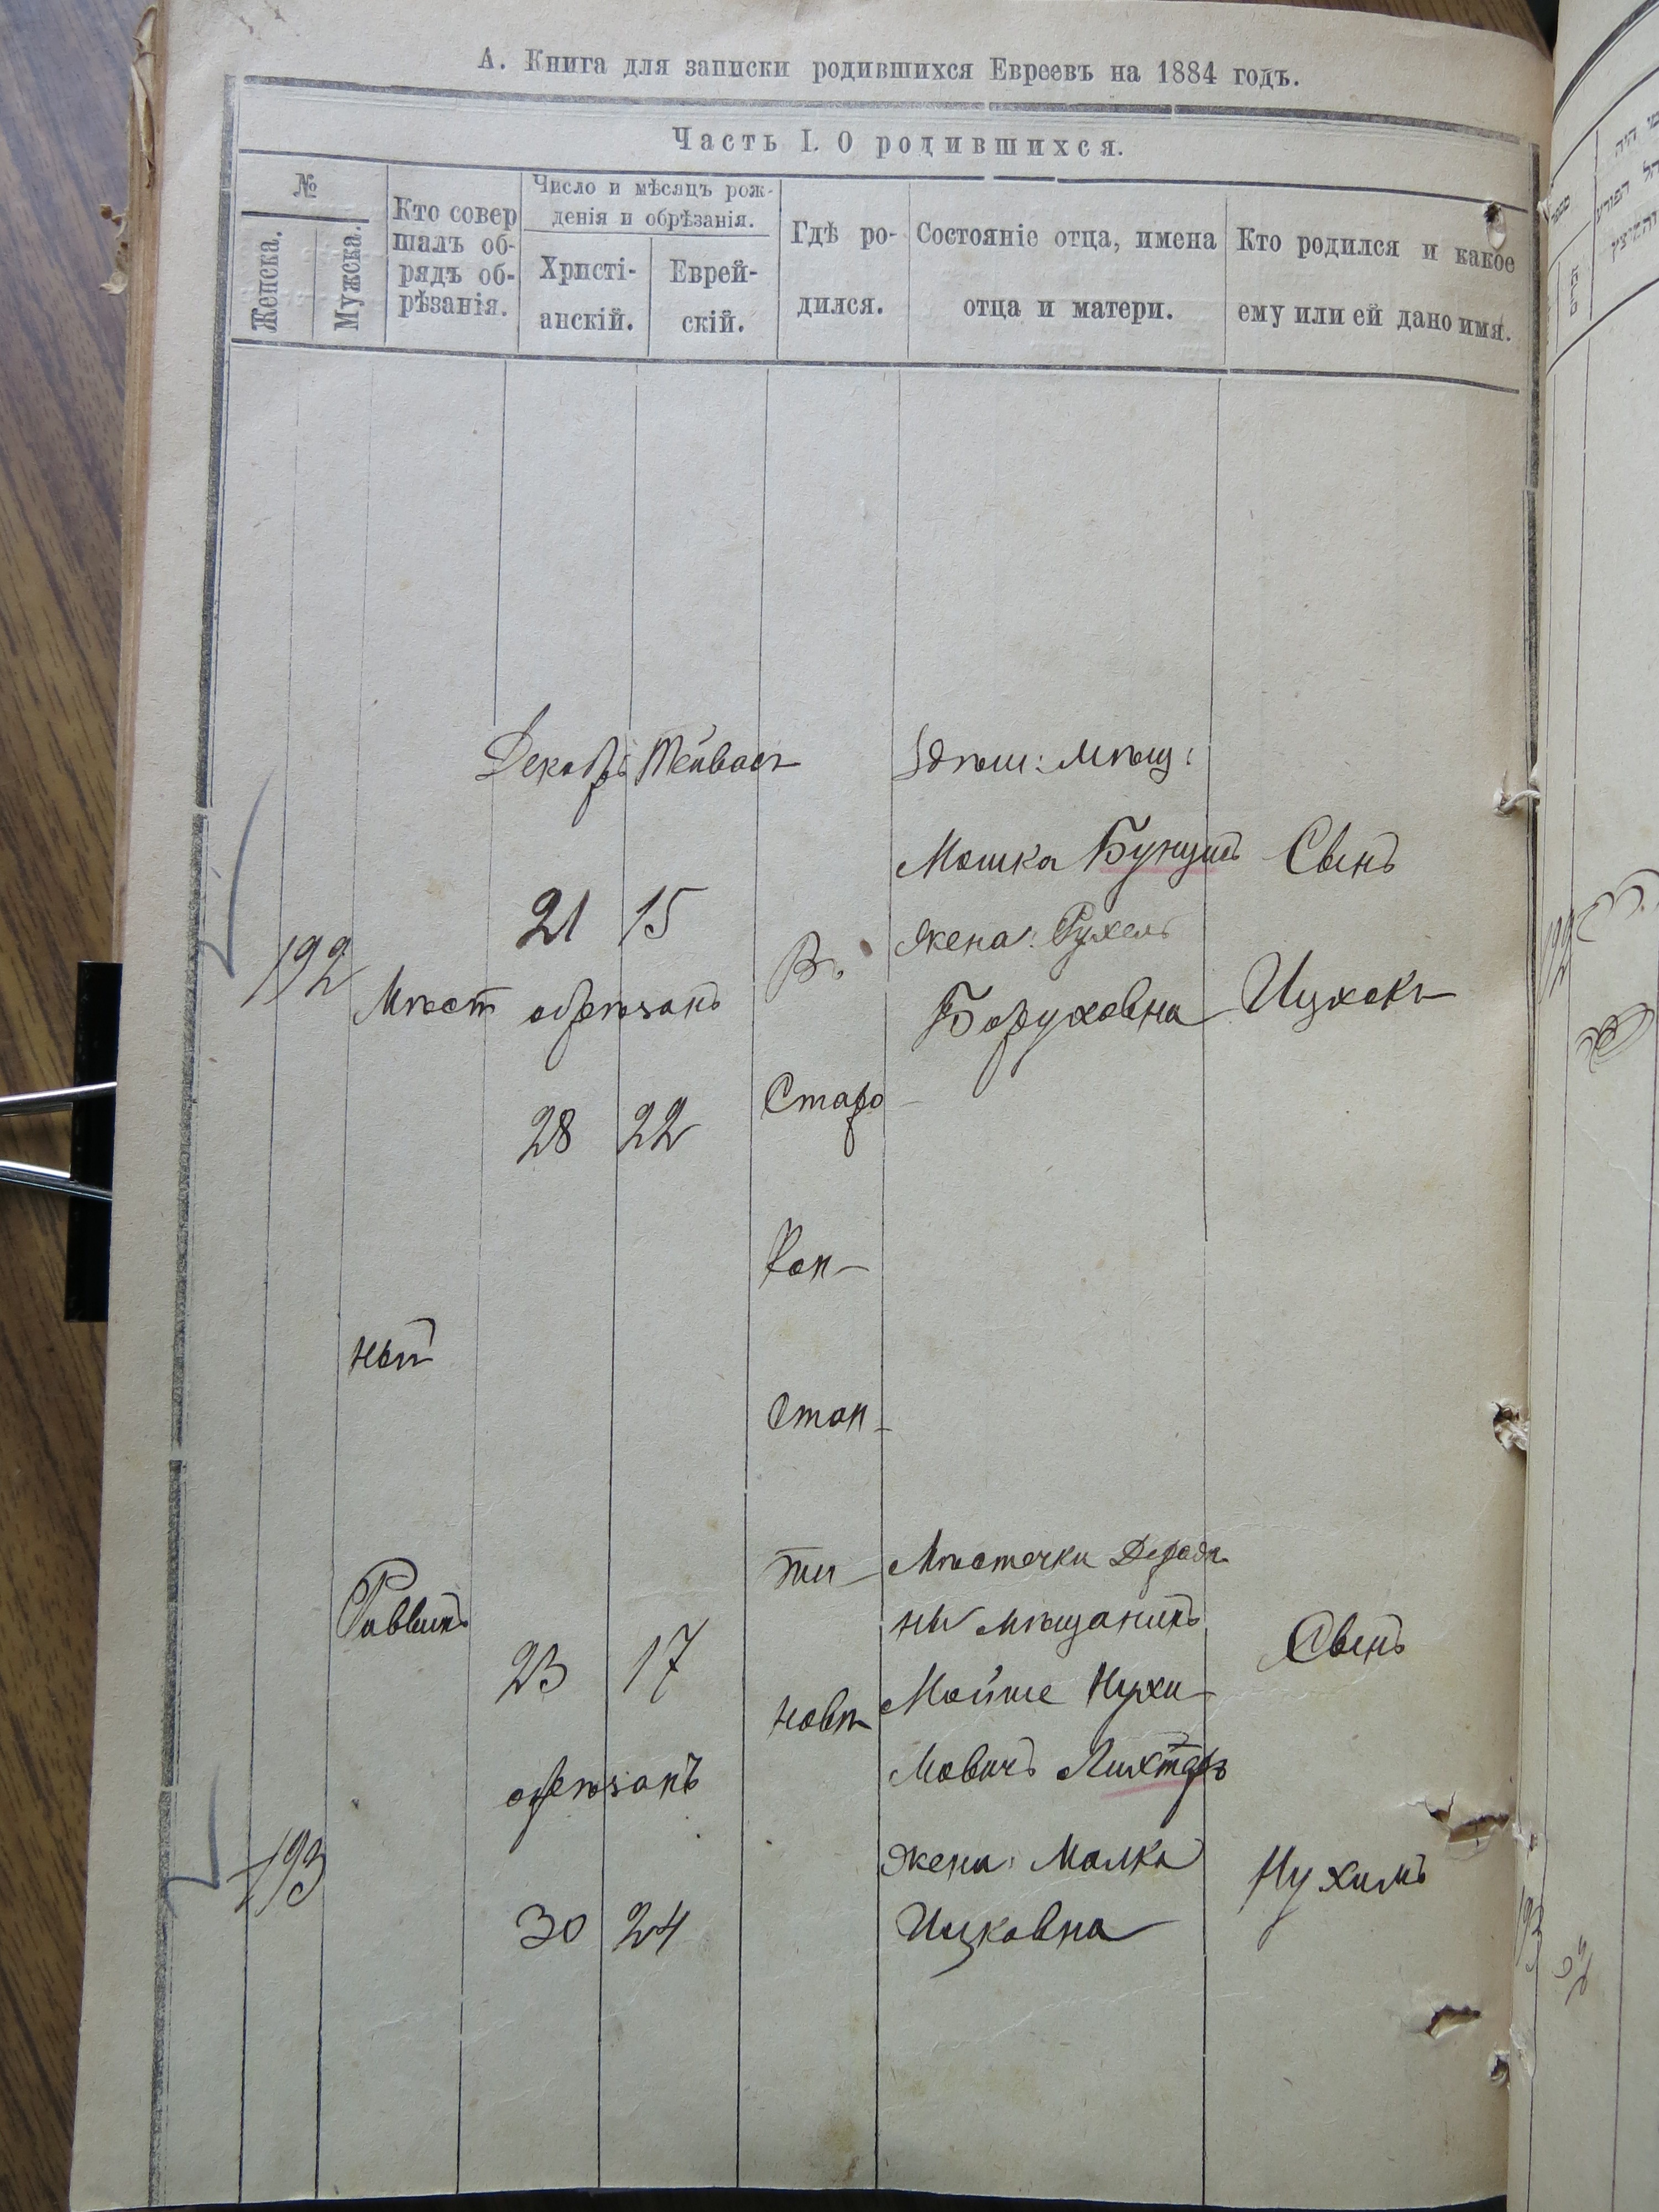 А. Книга для записки родившихся Евреевъ на 1884 годъ.
Часть I. О родившихся.
№
Женска.
Мужска.
Кто совер
шалъ об-
рядъ об-
рѣзанія.
Число и мѣсяцъ рож-
денія и обрѣзанія.
Христі-
анскій.
Еврей-
скій.
Гдѣ ро-
дился.
Состояніе отца, имена
отца и матери.
Кто родился и какое
ему или ей дано имя.
Декабрь Тейвасъ
192
Мѣст
ный
Раввинъ
21 15
обрѣзанъ
28 22
Въ
Старо
Кон-
стан-
ти-
новѣ
Здѣш: мѣщ:
Мошка
жена: Рухель
Боруховна
Сынъ
Ицхокъ
193
23 17
обрѣзанъ
30 24
Мѣстечки Деражъ
ни мѣщанинъ
Мойше Нухи-
мовичъ Лихтеръ
жена: Малка
Ицковна
Сынъ
Нухимъ
192
193